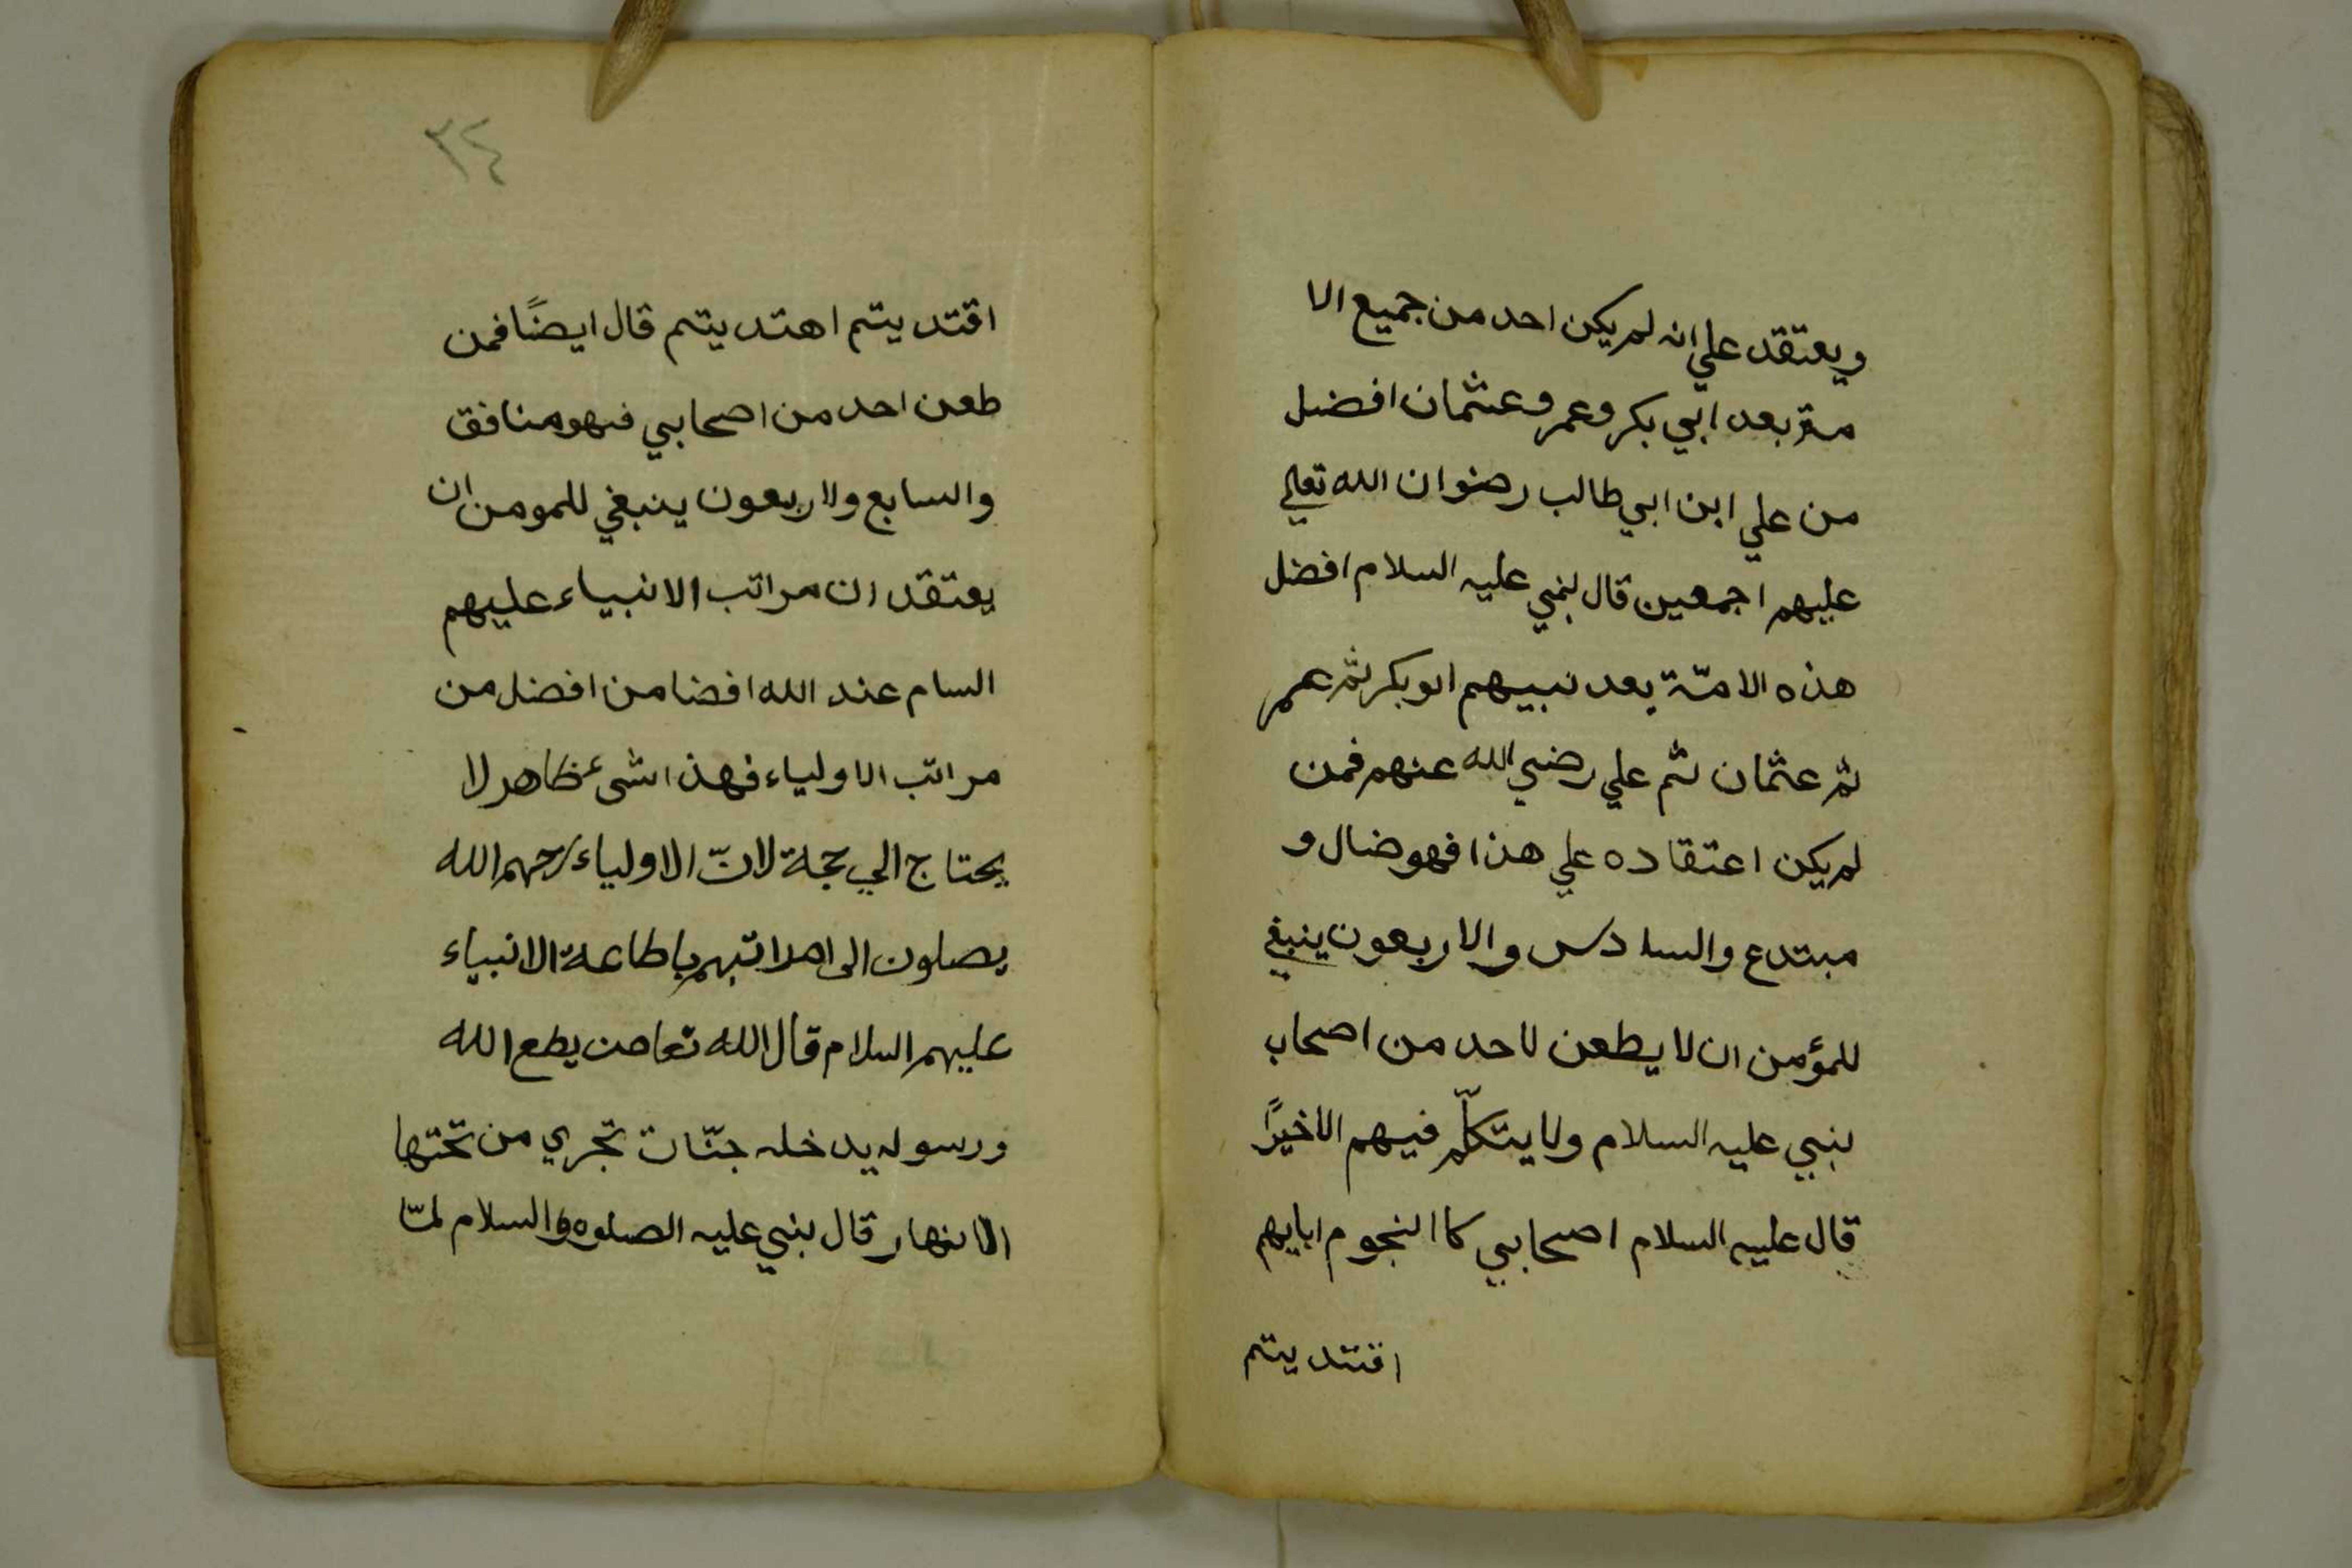 ويعتقد علي انه لم يكن احد من جميع الا
مة بعد ابي بكر وعمر وعثمان افضل
من علي ابن ابي طالب رضوان الله تعلي
عليهم اجمعين قال لنبي عليه السلام افضل
هذه الامّة بعد نبيهم ابو بكر ثم عمر
ثم عثمان ثم علي رضي الله عنهم فمن
لم يكن اعتقاده علي هذا فهو ضال و
مبتدع والسادس والاربعون ينبغي
للمؤمن ان لا يطعن لاحد من اصحاب
بنبي عليه السلام ولا يتكلّم فيهم الاخيرًا
قال عليه السلام اصحابي كا النجوم ابايهم
اقتديتم
٣٤
اقتديتم اهتديتم قال ايضًا فمن
طعن احد من اصحابي فهو منافق
والسابع ولاربعون ينبغي للمومن ان
يعتقد ان مراتب الانبياء عليهم
السام عند الله افضا من افضل من
مراتب الاولياء فهذا شىء ظاهر لا
يحتاج الي حجة لانّ الاولياء رحمهم الله
يصلون الى امراتبهم باطاعة الانبياء
عليهم السلام قال الله تعا من يطع الله
ورسوله يدخله جنّات تجري من تحتها
الانهار قال بنبي عليه الصلوه والسلام لمّا